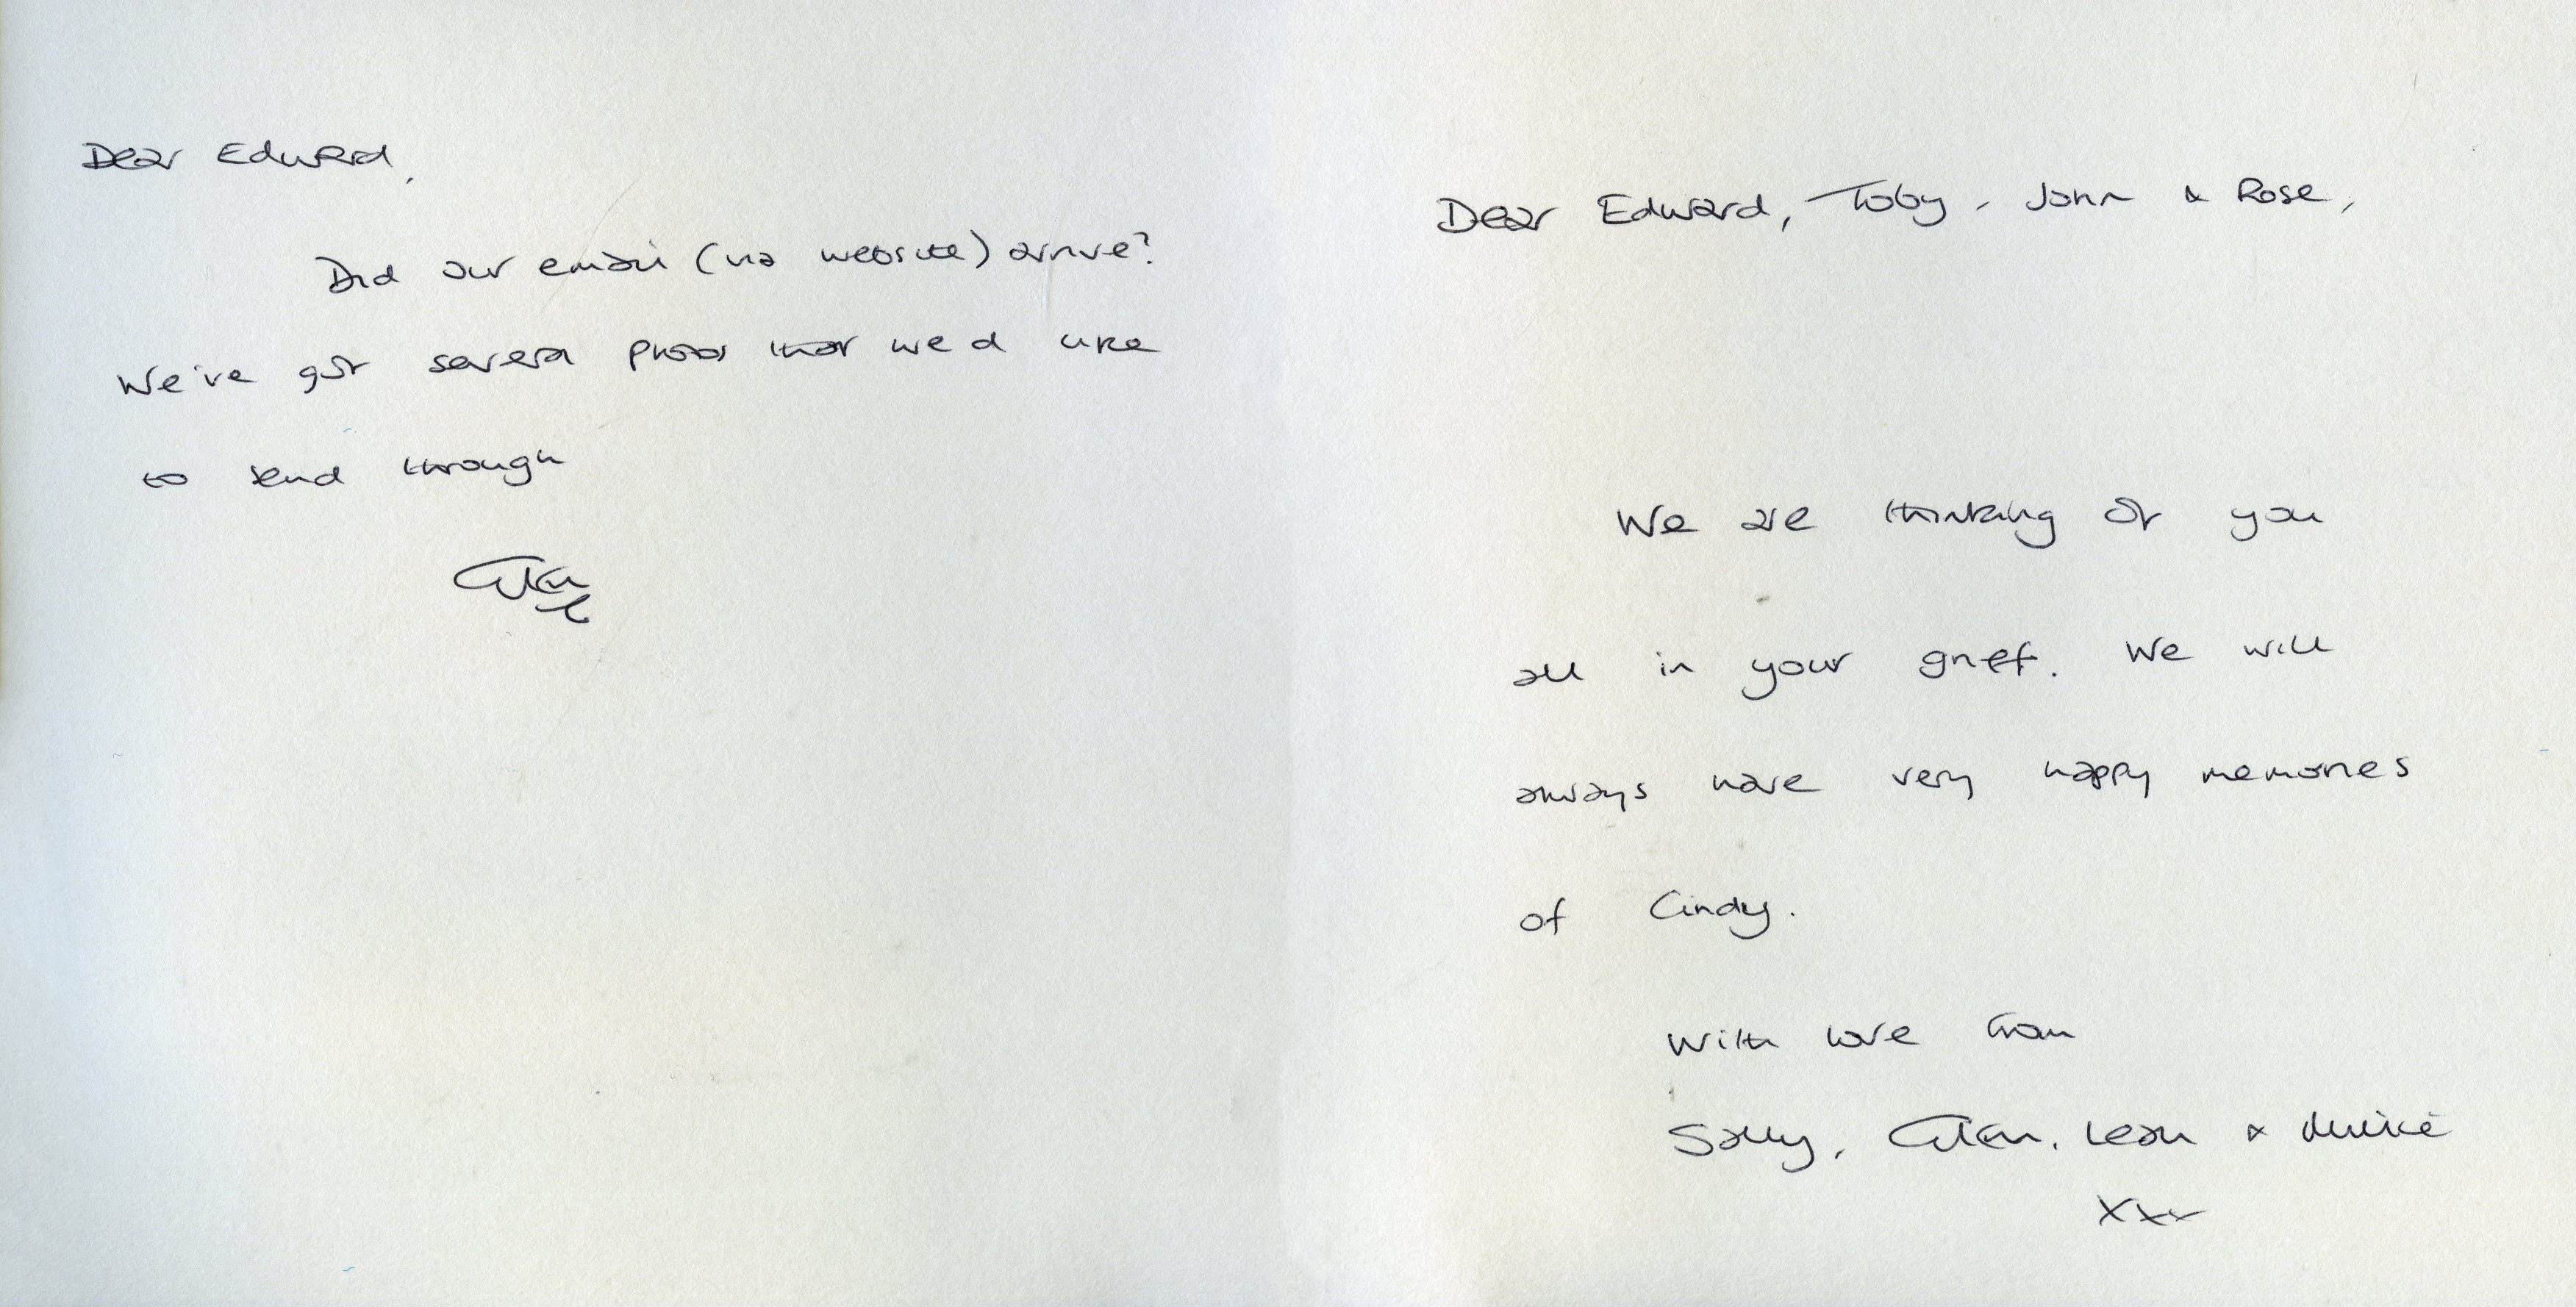 Dear Edward,
Did our email (via website) arrive?
We've got several photos that we'd like
to send through
Glen
Dear Edward, Toby, John & Rose,
We are thinking of you
all in your grief. We will
always have very happy memories
of Cindy.
With love from
Sally, Glen, Leah &
xxx